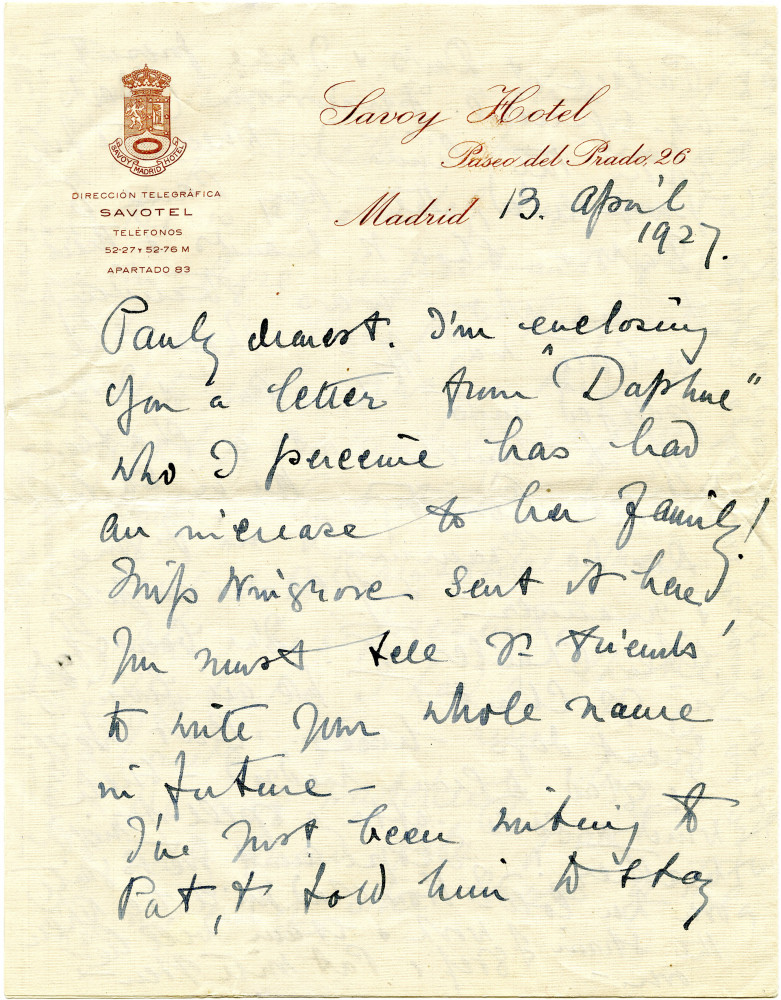 SAVOY MADRID HOTEL
DIRECCIÓN TELEGRÁFICA
SAVOTEL
TELÉFONOS
52-27 Y 52-76 M
APARTADO 83
Savoy Hotel
Paseo del Prado, 26
Madrid 13. April
1927.
Pauly dearest. I'm enclosing
you a letter from "Daphne"
who I perceive has had
an increase to her family!
Miss sent it here,
You must tell yr friends
to write your whole name
in future –
I've just been writing to
Pat, & told him to stay